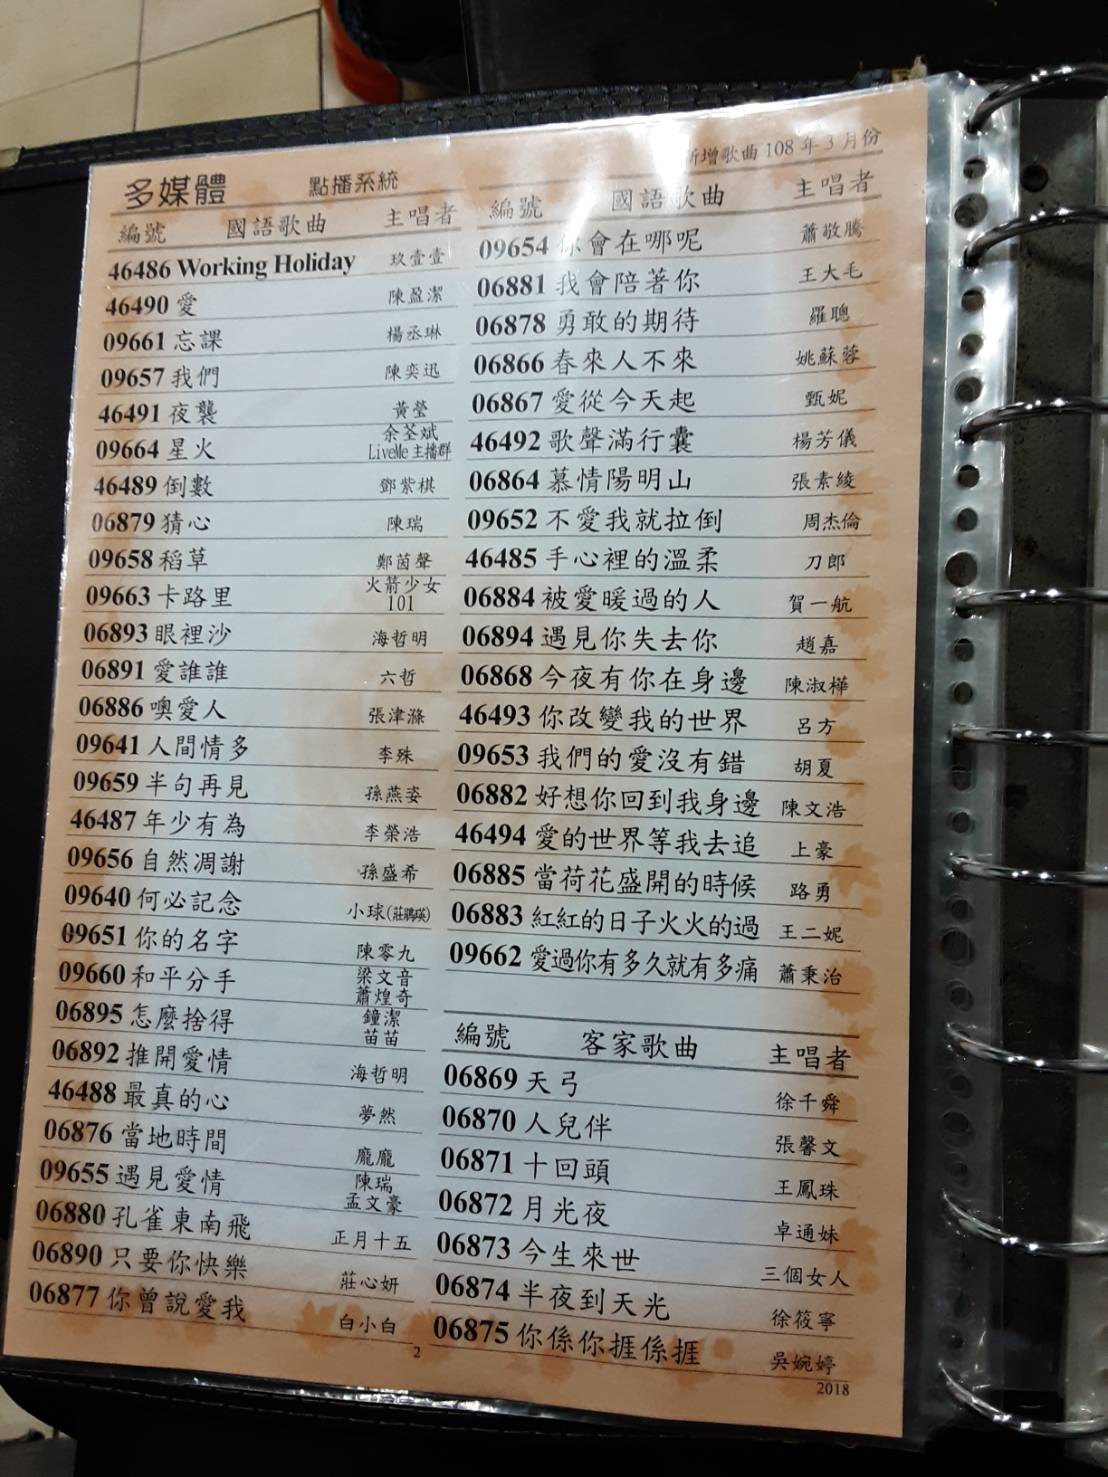 多媒體 點播系統
新增歌曲 108 年 3 月份
編號 國語歌曲 主唱者
46486 Working Holiday 玖壹壹
46490 愛 陳盈潔
09661 忘課 楊丞琳
09657 我們 陳奕迅
46491 夜襲 黃瑩
09664 星火 余荃斌
LiveMe 主播群
46489 倒數 鄧紫棋
06879 猜心 陳瑞
09658 稻草 鄭茵聲
09663 卡路里 火箭少女
101
06893 眼裡沙 海哲明
06891 愛誰誰 六哲
06886 噢愛人 張津滌
09641 人間情多 李殊
09659 半句再見 孫燕姿
46487 年少有為 李榮浩
09656 自然凋謝 孫盛希
09640 何必記念 小球(莊鵑瑛)
09651 你的名字 陳零九
09660 和平分手 梁文音
蕭煌奇
06895 怎麼捨得 鐘潔
苗苗
06892 推開愛情 海哲明
46488 最真的心 夢然
06876 當地時間 龐龐
09655 遇見愛情 陳瑞
孟文豪
06880 孔雀東南飛 正月十五
06890 只要你快樂 莊心妍
06877 你曾說愛我 白小白
編號 國語歌曲 主唱者
09654 你會在哪呢 蕭敬騰
06881 我會陪著你 王大毛
06878 勇敢的期待 羅聰
06866 春來人不來 姚蘇蓉
06867 愛從今天起 甄妮
46492 歌聲滿行囊 楊芳儀
06864 慕情陽明山 張素綾
09652 不愛我就拉倒 周杰倫
46485 手心裡的溫柔 刀郎
06884 被愛暖過的人 賀一航
06894 遇見你失去你 趙嘉
06868 今夜有你在身邊 陳淑樺
46493 你改變我的世界 呂方
09653 我們的愛沒有錯 胡夏
06882 好想你回到我身邊 陳文浩
46494 愛的世界等我去追 上豪
06885 當荷花盛開的時候 路勇
06883 紅紅的日子火火的過 王二妮
09662 愛過你有多久就有多痛 蕭秉治
編號 客家歌曲 主唱者
06869 天弓 徐千舜
06870 人兒伴 張馨文
06871 十回頭 王鳳珠
06872 月光夜 卓通妹
06873 今生來世 三個女人
06874 半夜到天光 徐筱寧
06875 你係你捱係捱 吳婉婷
2
2018